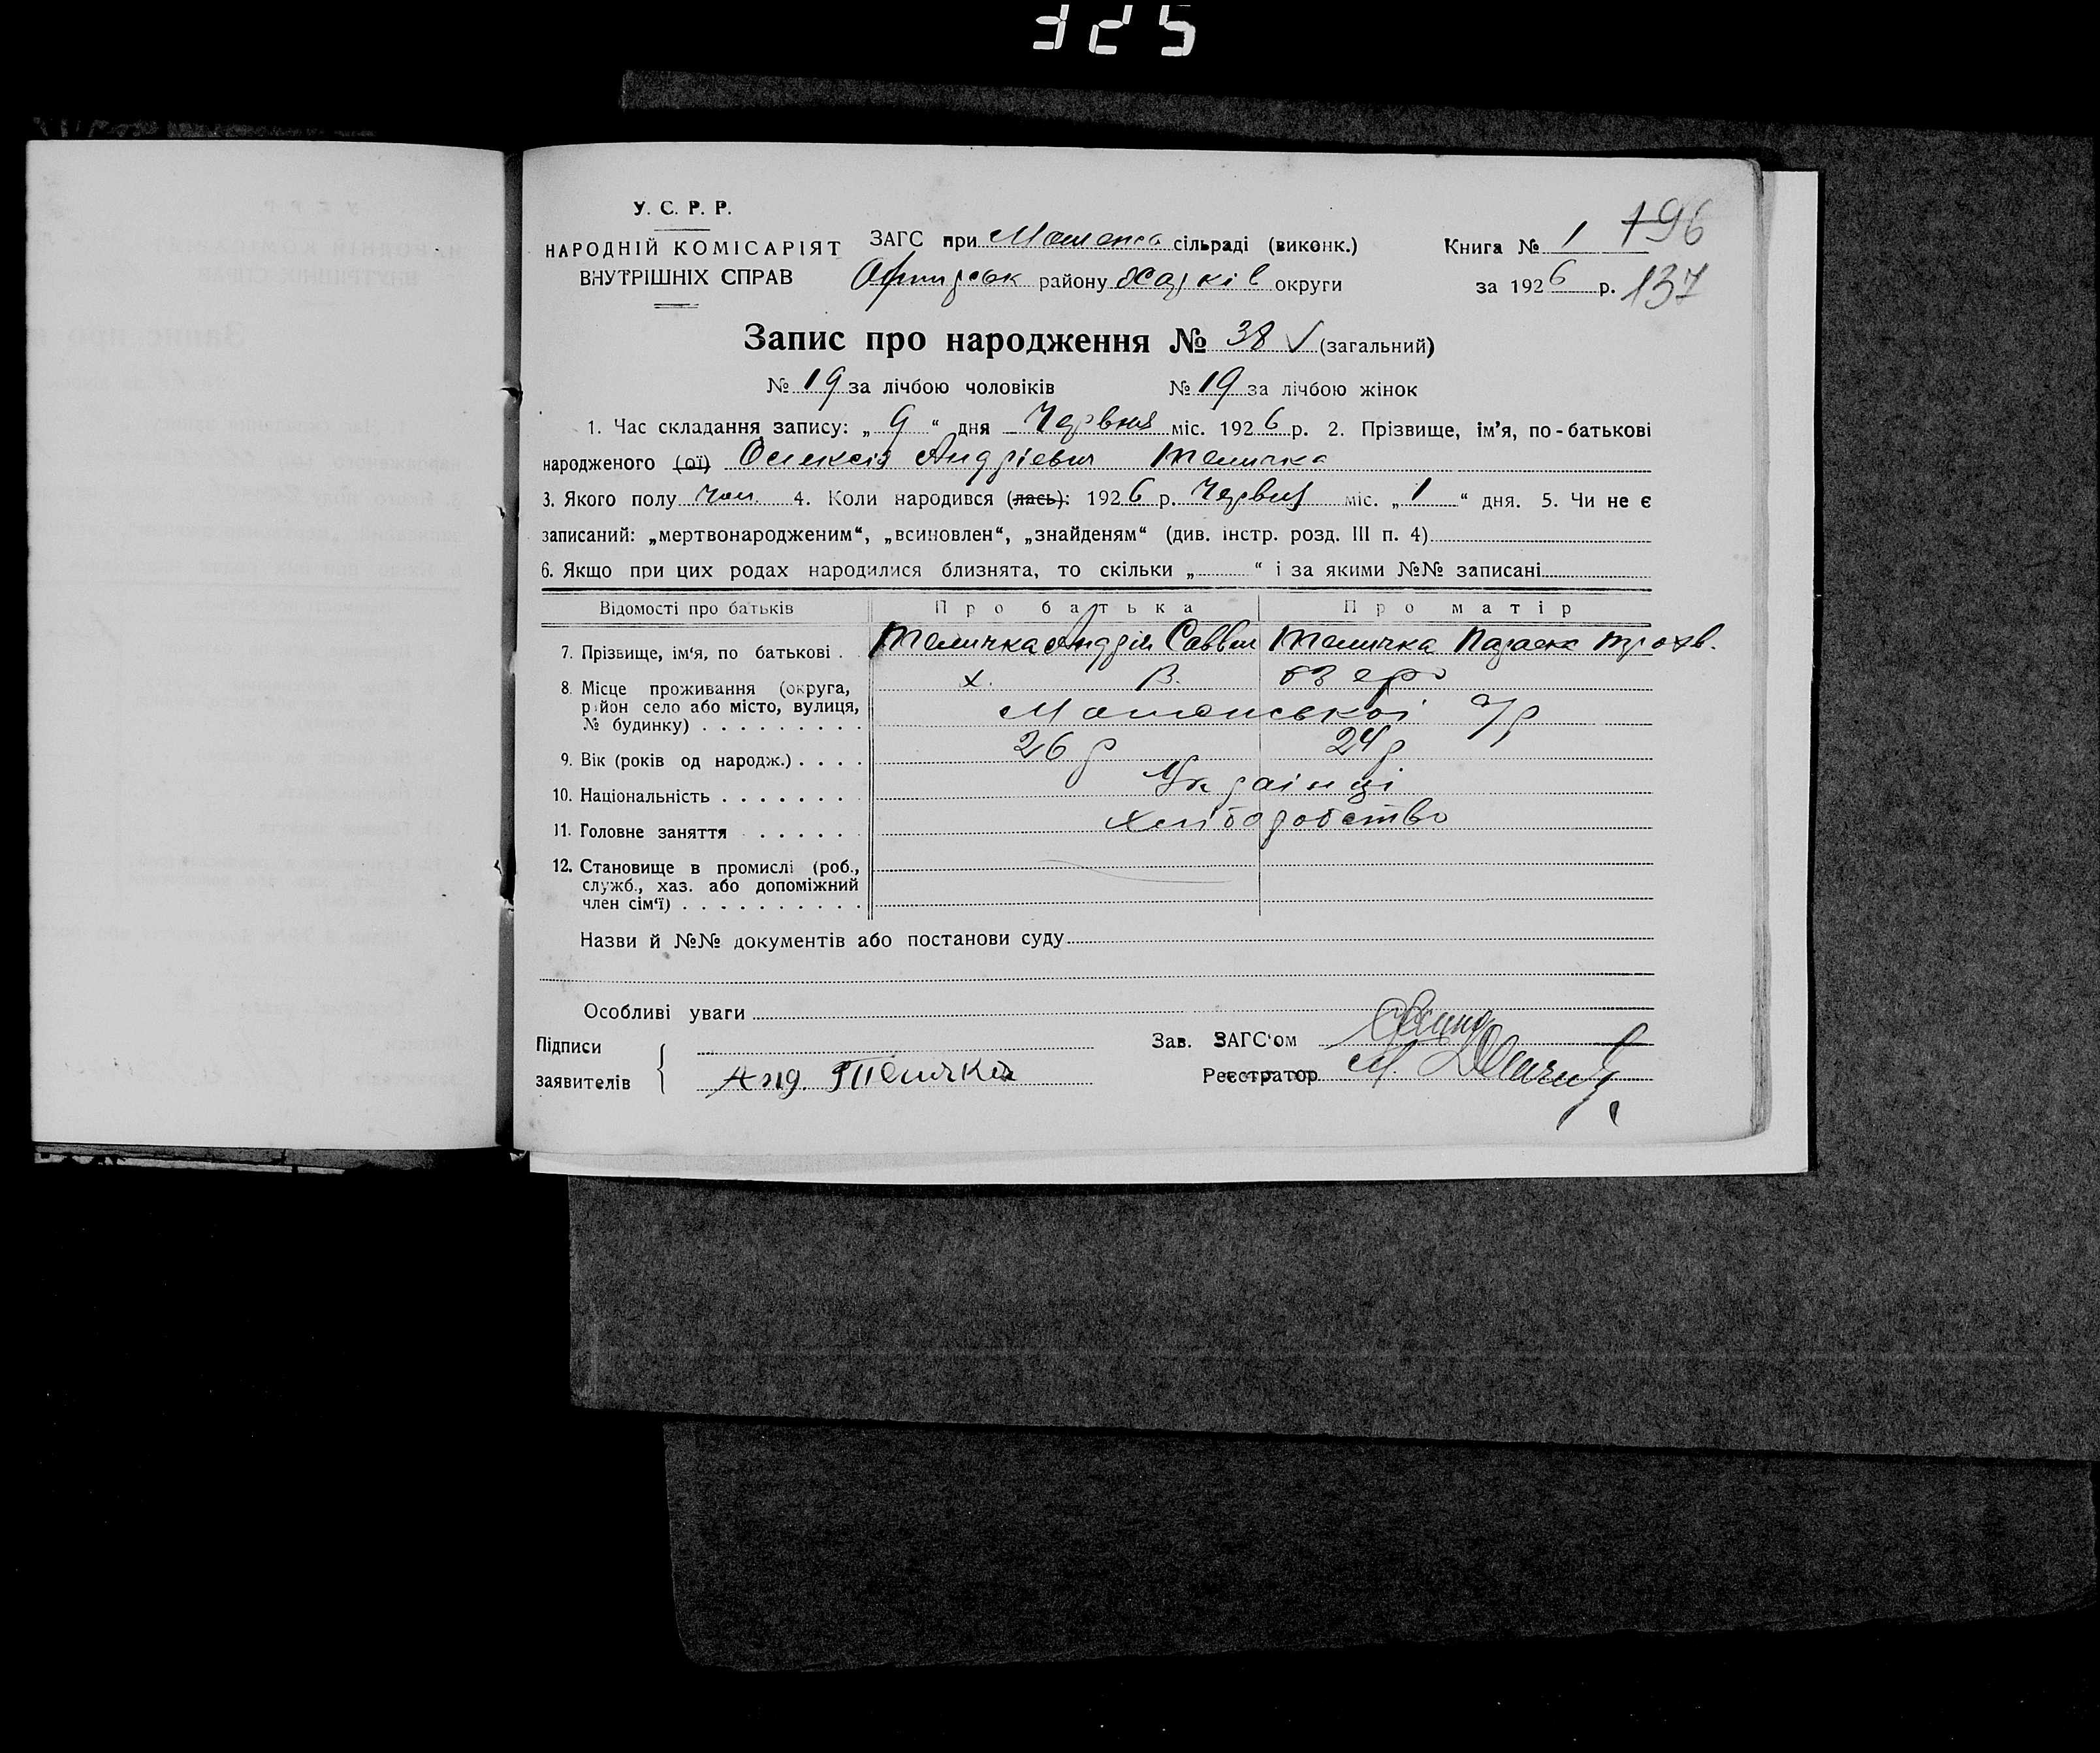 325
У. С. Р. Р.
НАРОДНІЙ КОМІСАРІЯТ
ВНУТРІШНІХ СПРАВ
ЗАГС при сільраді (виконк.)
району Харків округи
Книга № 1 196
за 1926 р. 137
Запис про народження № 38 (загальний)
№ 19 за лічбою чоловіків № 19 за лічбою жінок
1. Час складання запису: „ 9 “ дня Червня міс. 1926 р. 2. Прізвище, ім’я, по-батькові
народженого (ої) Олексій Андрієвич Теличка
3. Якого полу чол. 4. Коли народився (лась): 1926 р. Червня міс. „ 1 “ дня. 5. Чи не є
записаний: „мертвонародженим“, „всиновлен“, „знайденям“ (див. інстр. розд. III п. 4)
6. Якщо при цих родах народилися близнята, то скільки „ “ і за якими №№ записані
Відомості про батьків Про батька Про матір
7. Прізвище, ім‘я, по батькові . Теличка Андрій Саввич Теличка Параска Трохв.
8. Місце проживання (округа, х. В.
район село або місто, вулиця,
№ будинку) . . . . . . . . . с/р
9. Вік (років од народж.) . . . . 26 р 24 р
10. Національність . . . . . . . Українці
11. Головне заняття . . . . . Хліборобство
12. Становище в промислі (роб.,
служб., хаз. або допоміжний
член сім‘ї) . . . . . . . . . .
Назви й №№ документів або постанови суду
Особливі уваги
Підписи
заявителів Анд. Теличка
Зав. ЗАГС‘ом
Реєстратор М.